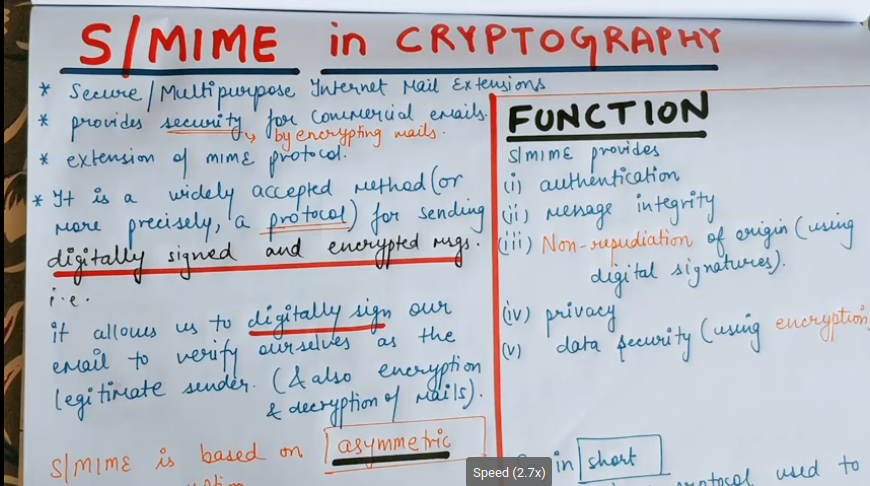 S/MIME in CRYPTOGRAPHY
* Secure/Multipurpose Internet Mail Extensions
* provides security for commercial emails.
↳ by encrypting mails.
* extension of MIME protocol.
* It is a widely accepted method (or
more precisely, a protocol) for sending
digitally signed and encrypted msgs.
i.e.
it allows us to digitally sign our
email to verify ourselves as the
legitimate sender. (& also encryption
& decryption of mails).
S/MIME is based on asymmetric
FUNCTION
S/MIME provides
(i) authentication
(ii) message integrity
(iii) Non-repudiation of origin (using
digital signatures).
(iv) privacy
(v) data security (using encryption
in short
protocol used to
Speed (2.7x)